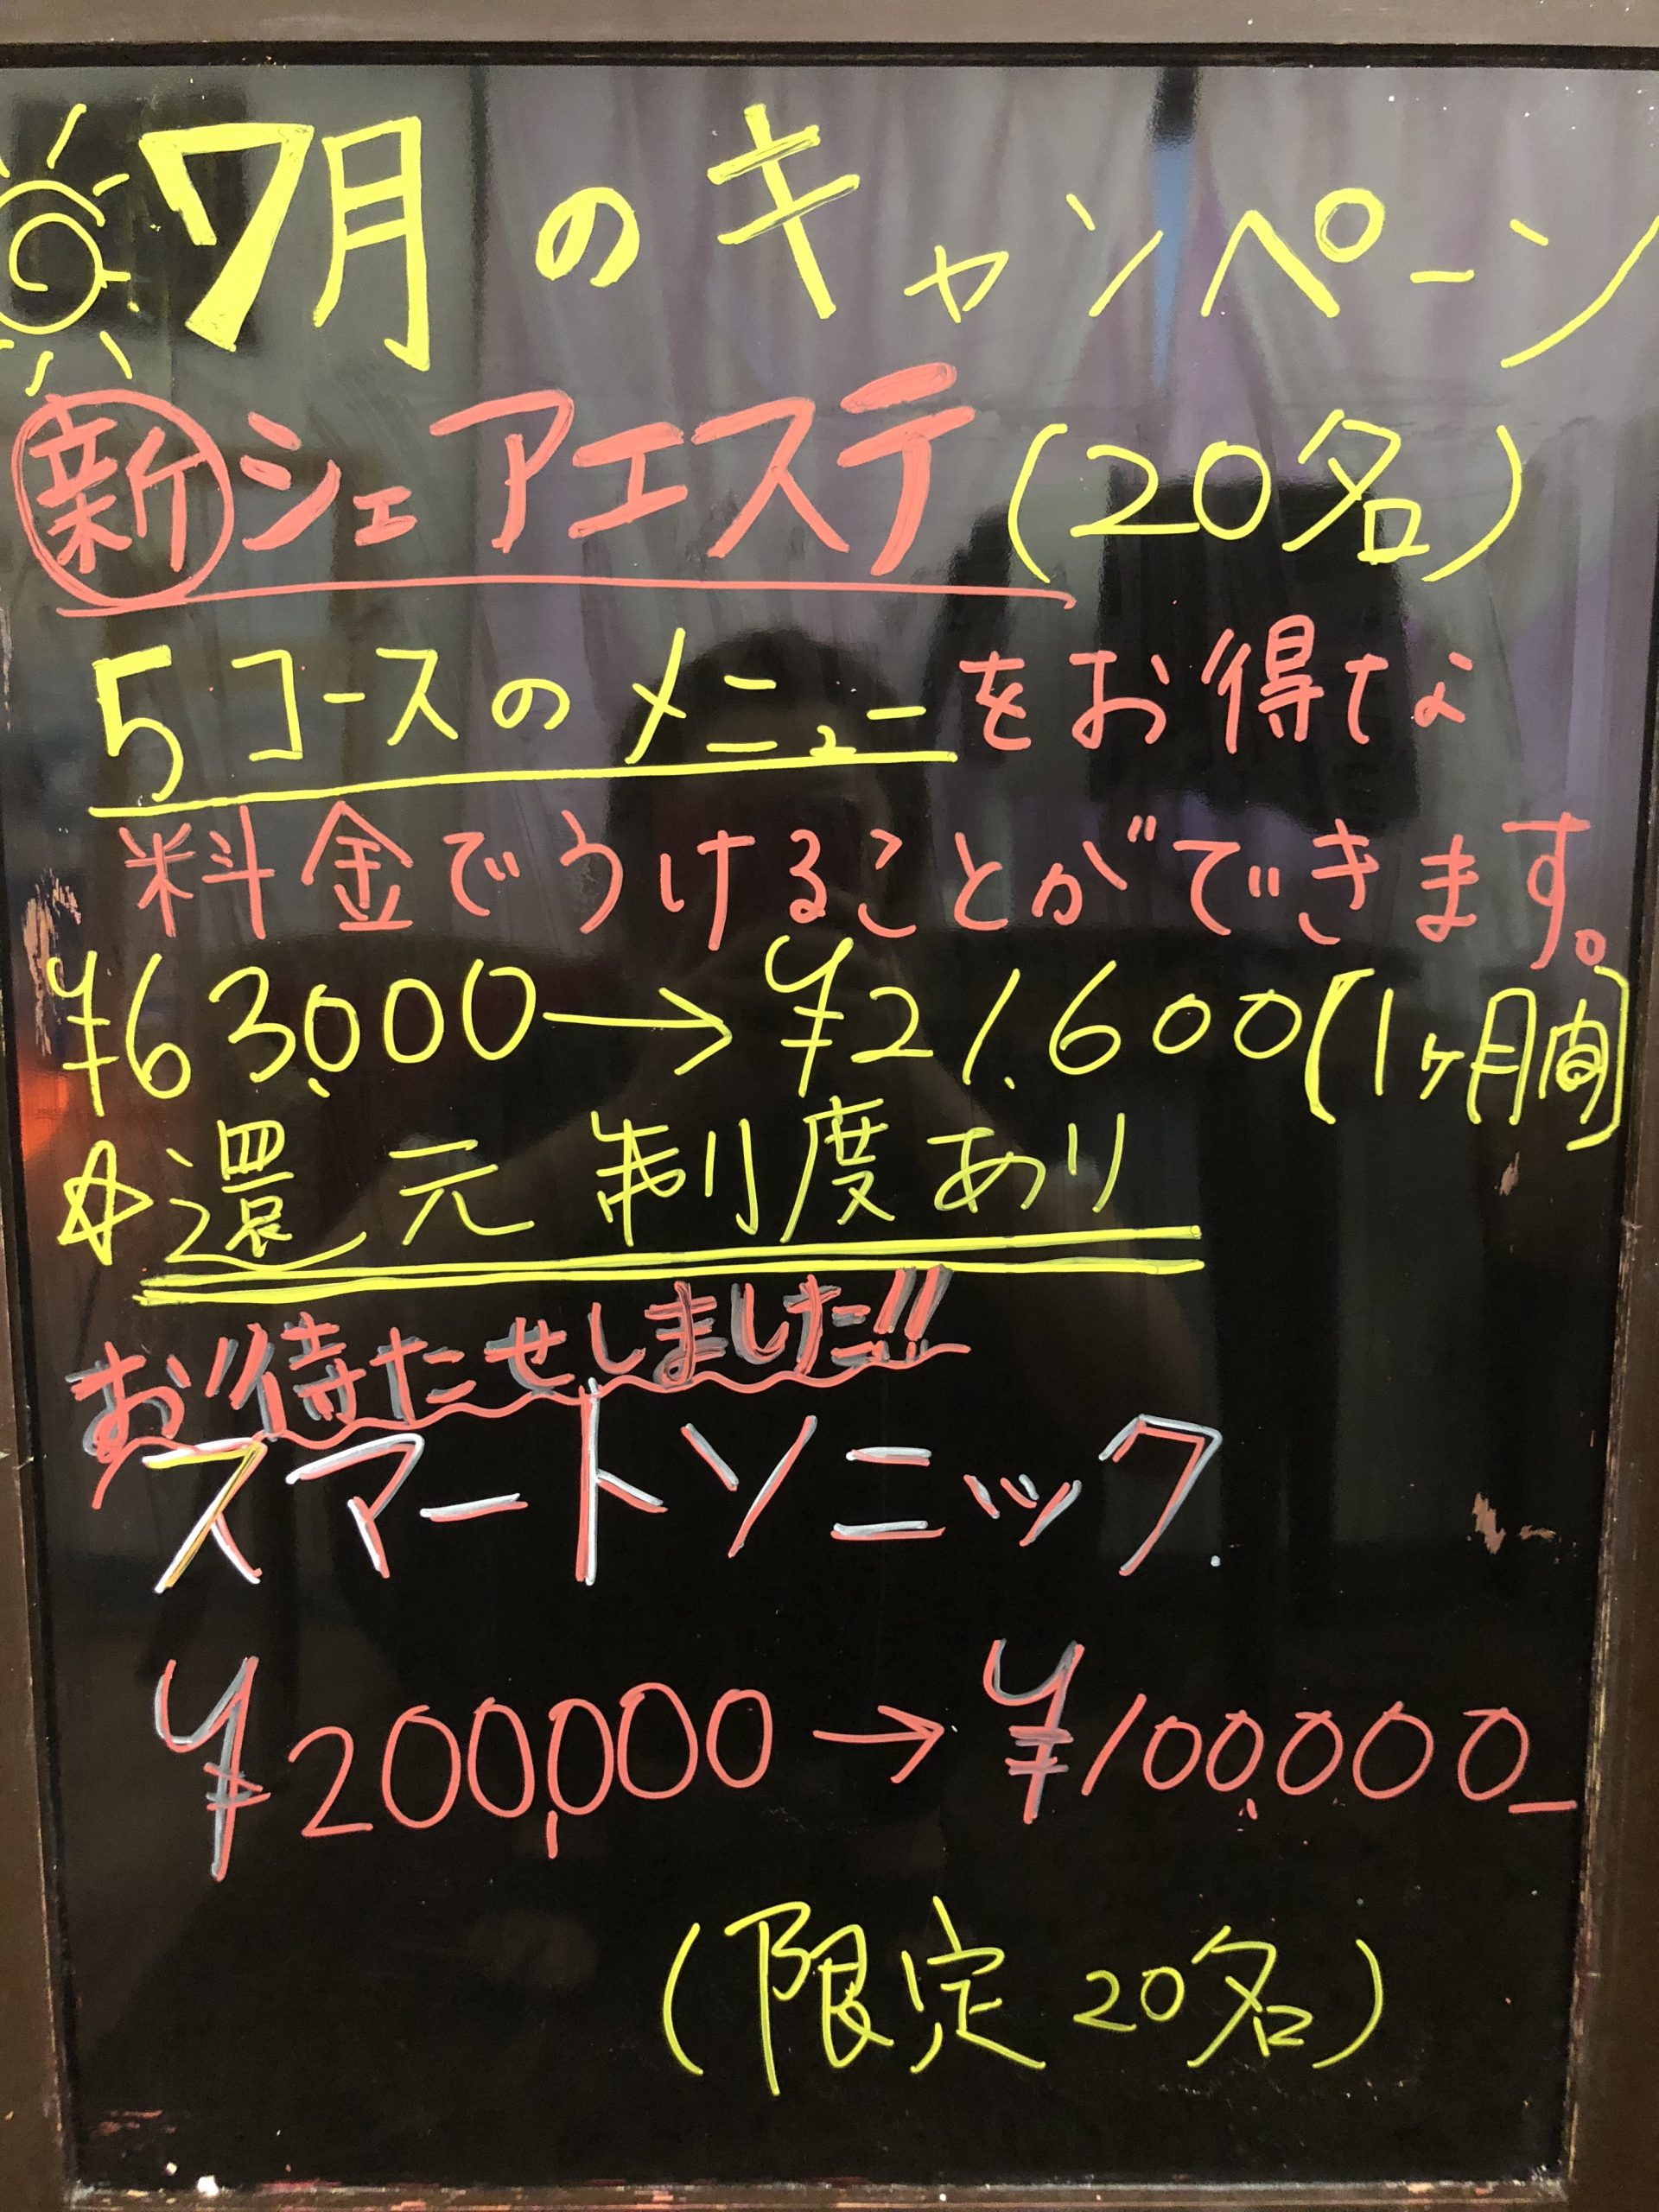 7月のキャンペーン
新シェアエステ(20名)
5コースのメニューをお得な
料金でうけることができます。
¥63,000→¥21,600(1ヶ月間)
☆還元制度あり
お待たせしました!!
スマートソニック.
¥200,000→¥100,000_
(限定20名)